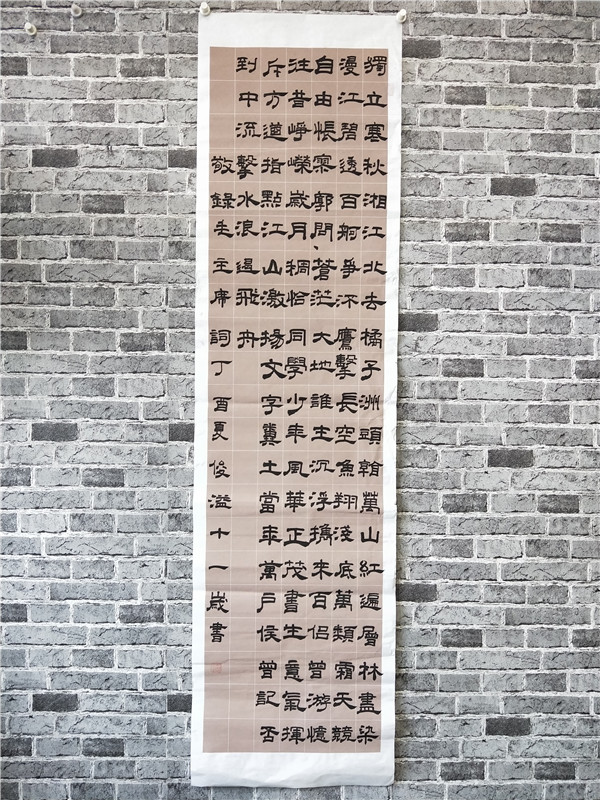 獨立寒秋湘江北去橘子洲頭翰萬山紅遍層林盡染
漫江碧透百舸爭流鷹擊長空魚翔淺底萬類霜天競
自由悵寥廓問蒼茫大地誰主沉浮攜來百侶曾游憶
往昔崢嶸歲月稠恰同學少年風華正茂書生意氣揮
斥方遒指點江山激揚文字糞土當年萬戶侯曾記否
到中流擊水浪遏飛舟
敬錄毛主席詞丁酉夏俊溢十一歲書